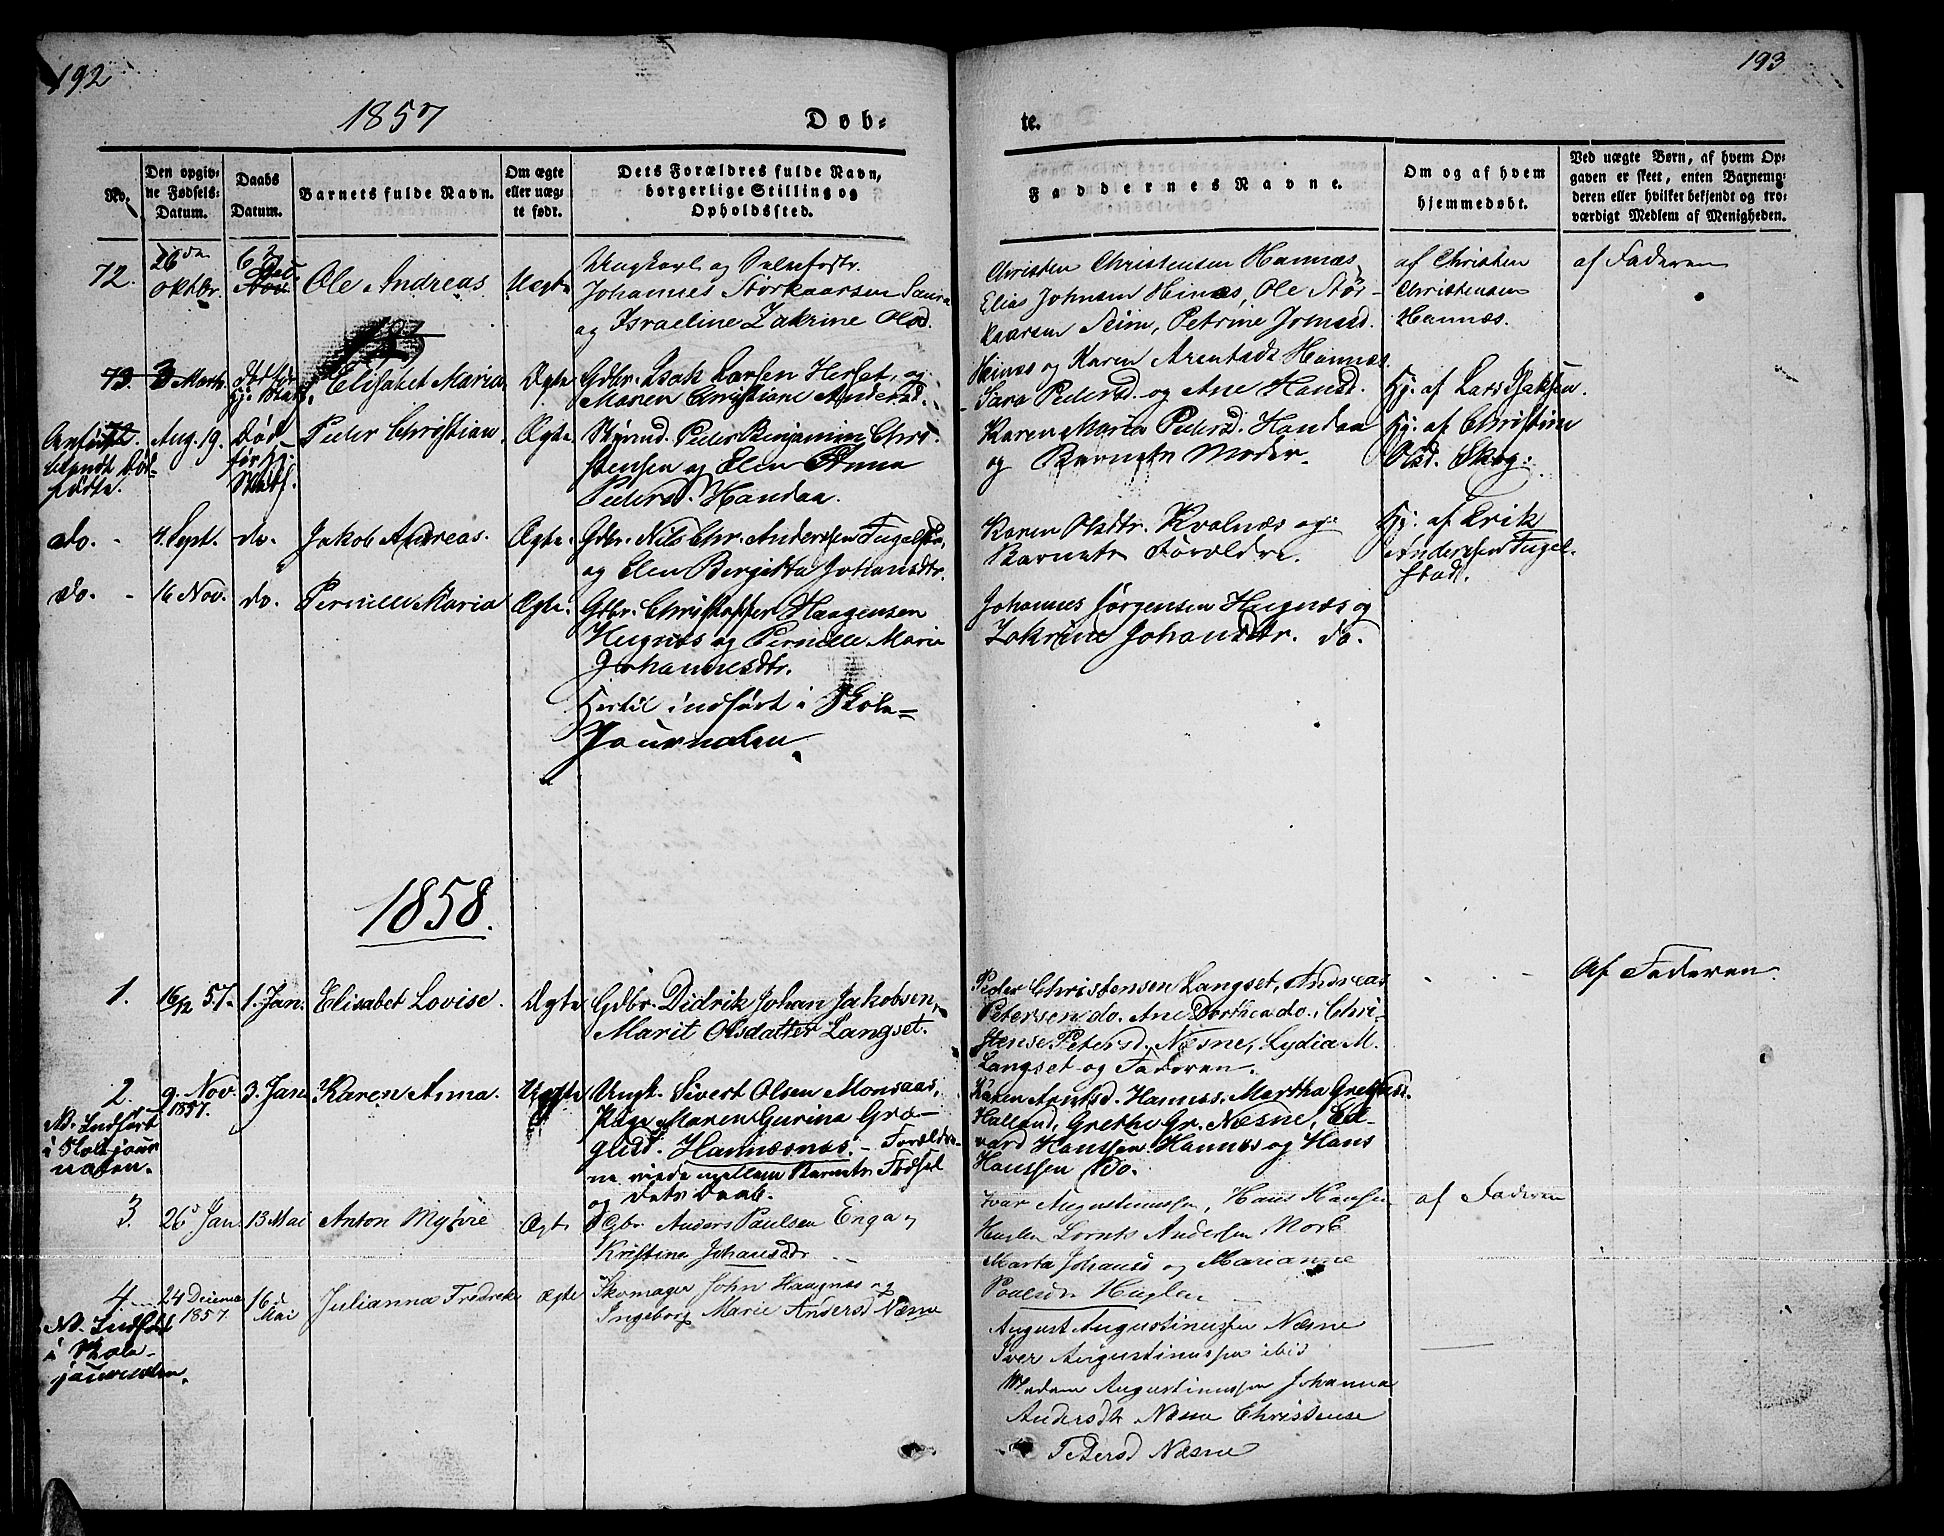 192
193
1857
Døb-
te.
No.
Den opgiv-
ne Fødsels-
Datum.
Daabs
Datum.
Barnets fulde Navn.
Om ægte
eller uæg-
te født.
Dets Forældres fulde Navn,
borgerlige Stilling og
Opholdssted.
Faddernes Navne.
Om og af hvem
hjemmedøbt.
Ved uægte Børn, af hvem Op-
gaven er skeet, enten Barnemo-
deren eller hvilket bekjendt og tro-
værdigt Medlem af Menigheden.
72.
26de
Oktbr.
Ole Andreas
Uægte
Ungkarl og
Johannes Storkaarsen
og Israeline Zakrine Olsd.
Christen Christensen Hannæs
Elias Johnsen Hinæs, Ole Stor-
kaarsen Seim, Petrine
Heinæs og Karen Arentsdt. Hannæs
af Christen
Christensen
Hannæs.
af Faderen
73.
3 Marts
Elisabet Maria
Ægte
Gdbr. Isak Larsen Herset, og
Maren Christiane Andersd.
Sara Pedersd. og Ane Hansd.
Hj. af Lars Isaksen.
Anført
blandt Død-
fødte.
Aug. 19.
Død
før Hj.
Peder Christian
Ægte
Peder Benjamin Chri-
stensen og Elen Anna
Pedersd. Handaa.
Karen Maria Pedersd. Handaa
og Barnets Moder.
Hj. af Christine
Olsd. Skog.
do. -
4. Sept.
do.
Jakob Andreas.
Ægte.
Gdbr. Nils Chr. Anderssen Fugelsta,
og Elen Bergitta Johansdtr.
Karen Olsdtr. Kvalnæs og
Barnets Forældre.
Hj. af Erik
Anderssen Fugel-
stad.
do. -
16 Nov.
do.
Pernille Maria
Ægte.
Gdbr. Christoffer Haagensen
Hugnæs og Pernille Maria
Johannesdtr.
Johannes Jørgensen Hugnæs og
Zakrine Johansdtr. do.
Hertil indført i Skole-
Journalen.
1858.
1.
16/12 57.
1. Jan.
Elisabet Lovise.
Ægte
Gdbr. Didrik Johan Jakobsen,
Marit Olsdatter Langset.
Peder Christensen Langset, Andreas
Petersen do. Ane Dorthea do., Chri-
stense Petersd. Næsne, Lydia M.
Langset og Faderen.
- -
Af Faderen.
2.
9. Nov.
1857.
3. Jan.
Karen Anna.
Uægte
Ungk. Sivert Olsen Monsaas,
Pige Maren Gurina Gre-
gusd. Hannæsnæs. - Forældre-
ne viede mellem Barnets Fødsel
og dets Daab.
NB. Indført
i Skolejour-
nalen.
Karen Arntsd. Hannæs, Martha
Halland, Grethe Gr. Næsne, Ed-
vard Hanssen Hannæs og Hans
Hanssen do.
3.
26d Jan
13 Mai
Anton
Ægte
Gbr. Anders Paulsen Enga og
Kristina Johansdtr
Ivar Augustinussen, Hans Hansen
Huglen Lornts Andersen
Marta Johansd og Marianne
Poulsdtr Huglen
af Faderen
4.
24 Decemb
1857.
16d
Mai
Julianna Fredrike
ægte
Skomager John Haagnæs og
Ingeborg Marie Andersd Næsne
NB. Indført
i Skole-
journalen.
August Augustinussen Næsne
Iver Augustinussen ibid
Madam Augustinussen Johanna
Andersdt Næsne Christense
Petersd Næsne